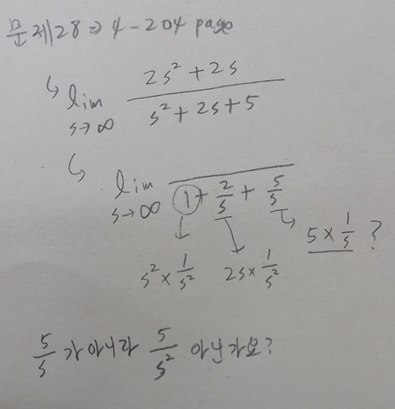 문제28 ⇒ 4-204 page
↳ lim s→∞ (2s² + 2s) / (s² + 2s + 5)
↳ lim s→∞ / (1 + 2/s + 5/s)
s² × 1/s² 2s × 1/s² 5 × 1/s ?
5/s 가 아니라 5/s² 아닌가요?